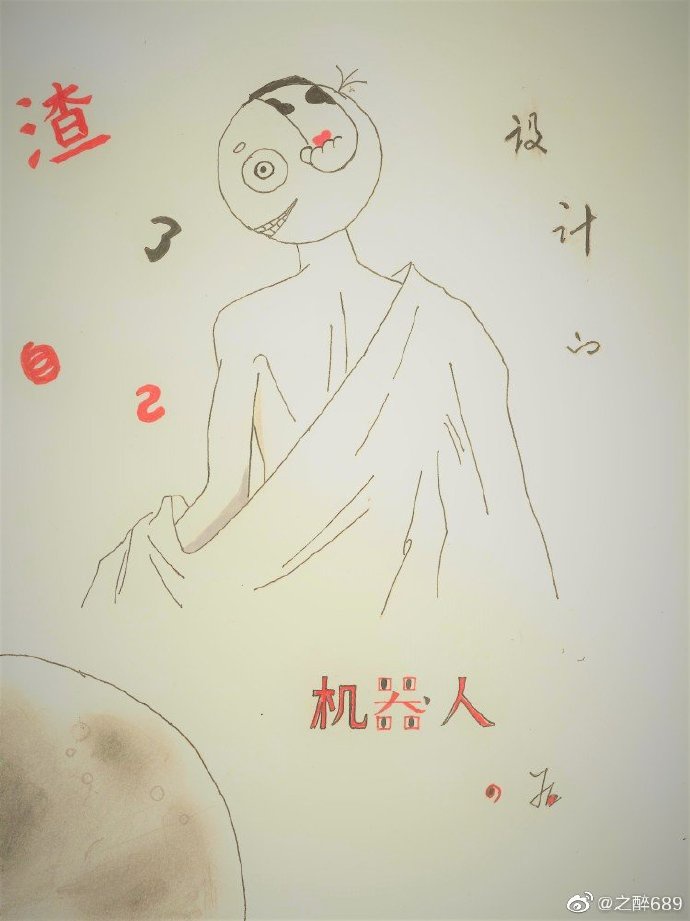 渣
了
自
己
设
计
的
机器人
の
@之醉689